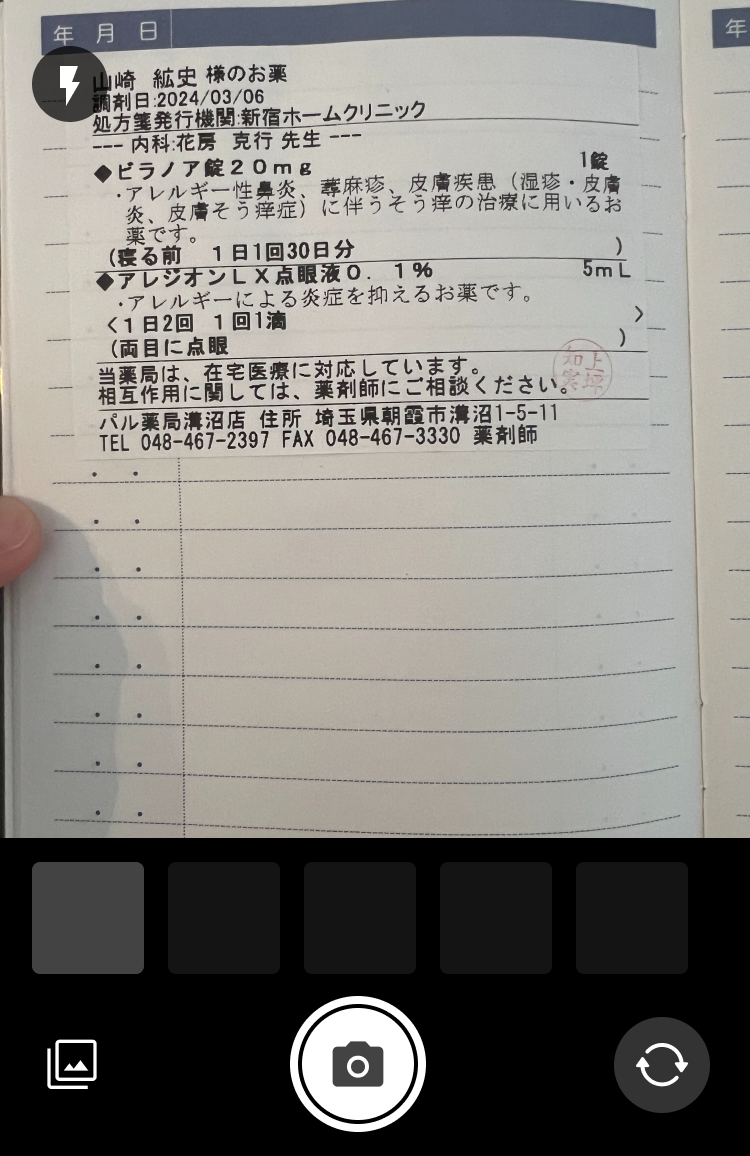 年 月 日
年
山崎 絋史 様のお薬
調剤日:2024/03/06
処方箋発行機関:新宿ホームクリニック
--- 内科:花房 克行 先生 ---
◆ビラノア錠20mg 1錠
・アレルギー性鼻炎、蕁麻疹、皮膚疾患(湿疹・皮膚
炎、皮膚そう痒症)に伴うそう痒の治療に用いるお
薬です。
(寝る前 1日1回30日分 )
◆アレジオンLX点眼液0.1% 5mL
・アレルギーによる炎症を抑えるお薬です。
<1日2回 1回1滴 >
(両目に点眼 )
当薬局は、在宅医療に対応しています。
相互作用に関しては、薬剤師にご相談ください。
上坪
如実
パル薬局溝沼店 住所 埼玉県朝霞市溝沼1-5-11
TEL 048-467-2397 FAX 048-467-3330 薬剤師